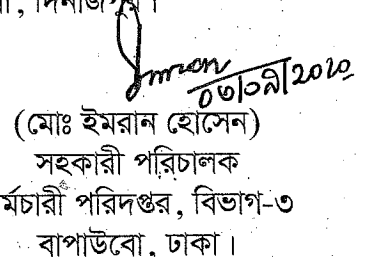 দিনাজপুর।
Imran
০৩/০৯/২০২০
(মোঃ ইমরান হোসেন)
সহকারী পরিচালক
র্মচারী পরিদপ্তর, বিভাগ-৩
বাপাউবো, ঢাকা।